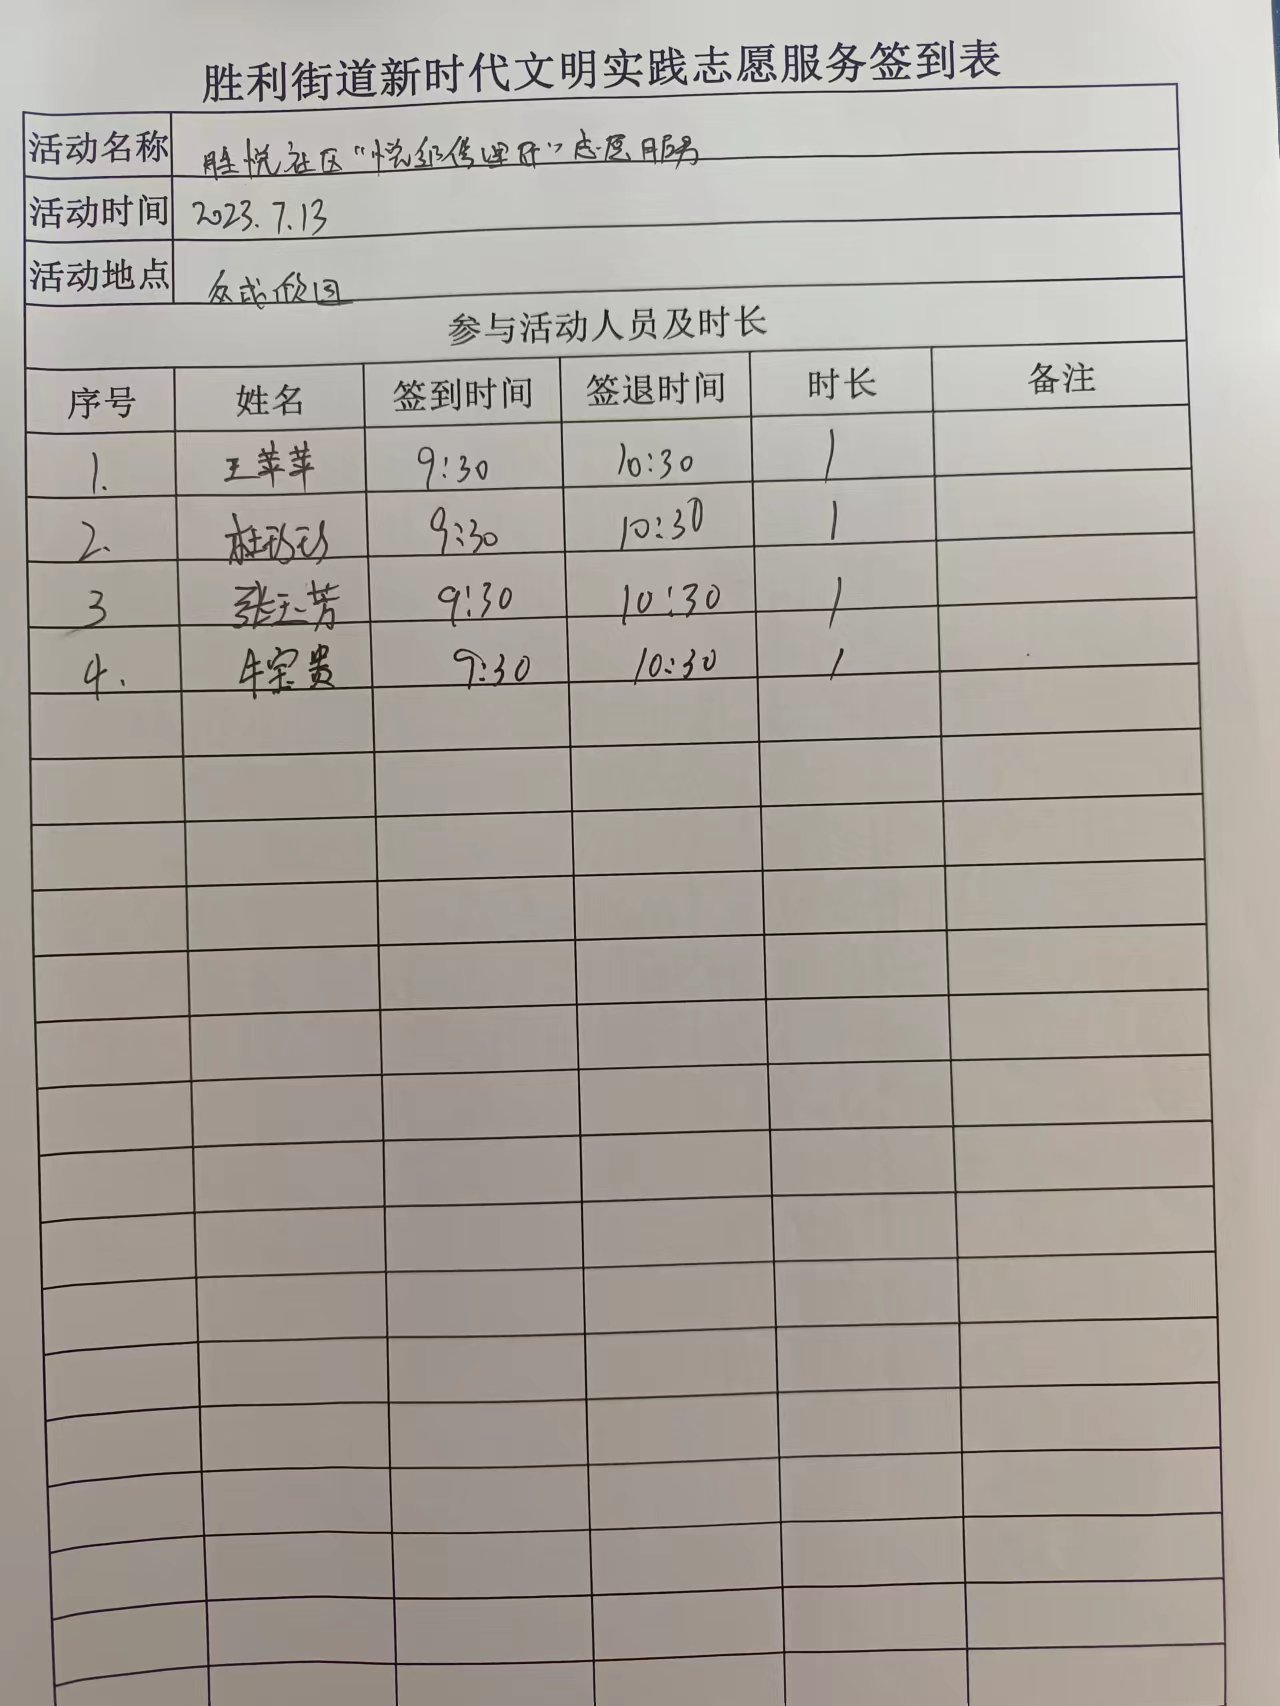 胜利街道新时代文明实践志愿服务签到表
活动名称 胜悦社区“悦邻 ”志愿服务
活动时间 2023.7.13
活动地点 众成 园
参与活动人员及时长
序号 姓名 签到时间 签退时间 时长 备注
1. 王苹苹 9:30 10:30 1
2. 9:30 10:30 1
3 张玉芳 9:30 10:30 1
4. 牛宝贵 9:30 10:30 1